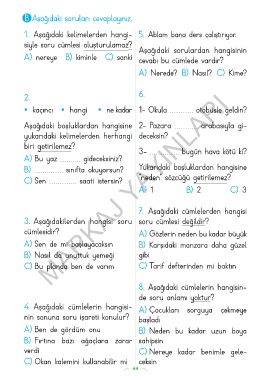 B Aşağıdaki soruları cevaplayınız.
1. Aşağıdaki kelimelerden hangi-
siyle soru cümlesi oluşturulamaz?
A) nereye B) kiminle C) sanki
2.
• kaçıncı • hangi • ne kadar
Aşağıdaki boşluklardan hangisine
yukarıdaki kelimelerden herhangi
biri getirilemez?
A) Bu yaz .......... gideceksiniz?
B) .......... sınıfta okuyorsun?
C) Sen .......... saati istersin?
3. Aşağıdakilerden hangisi soru
cümlesidir?
A) Sen de mi başlayacaksın
B) Nasıl da unuttuk yemeği
C) Bu planda ben de varım
4. Aşağıdaki cümlelerin hangisi-
nin sonuna soru işareti konulur?
A) Ben de gördüm onu
B) Fırtına bazı ağaçlara zarar
verdi
C) Okan kalemini kullanabilir mi
5. Ablam bana ders çalıştırıyor.
Aşağıdaki sorulardan hangisinin
cevabı bu cümlede vardır?
A) Nerede? B) Nasıl? C) Kime?
6.
1- Okula .......... otobüsle geldin?
2- Pazara .......... arabasıyla gi-
deceksin?
3- .......... bugün hava kötü ki?
Yukarıdaki boşluklardan hangisine
"neden" sözcüğü getirilemez?
A) 1 B) 2 C) 3
7. Aşağıdaki cümlelerden hangisi
soru cümlesi değildir?
A) Gözlerin neden bu kadar büyük
B) Karşıdaki manzara daha güzel
gibi
C) Tarif defterinden mi baktın
8. Aşağıdaki cümlelerin hangisin-
de soru anlamı yoktur?
A) Çocukları sorguya çekmeye
başladı
B) Neden bu kadar uzun boya
sahipsin
C) Nereye kadar benimle gele-
ceksin
MARKAJ YAYINLARI